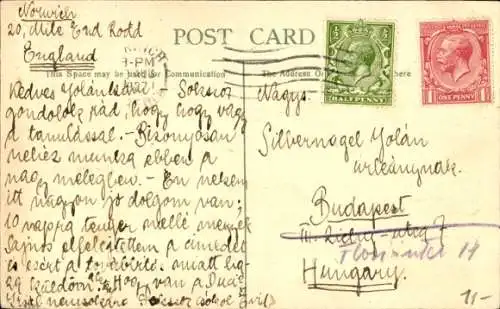 Norwich
20, Mile End Road
England
POST CARD
This Space may be used for Communication
The Address Only here
HALFPENNY
ONE PENNY
Kedves Jolánka! - Sokszor
gondolok rád, hogy, hogy vagy
a tanulással. - Bizonyosan
nehéz munka ebben a
nagy melegben. - En nekem
itt nagyon jó dolgom van;
10 napra tenger mellé megyek
Sajnos elfelejtettem a címedet
és ezért a továbbító miatt
küldöm. Hogy van a
Nagys.
Silbernagel Jolán
úrleánynak.
Budapest
III. Zichy-utca 7
Hungary.